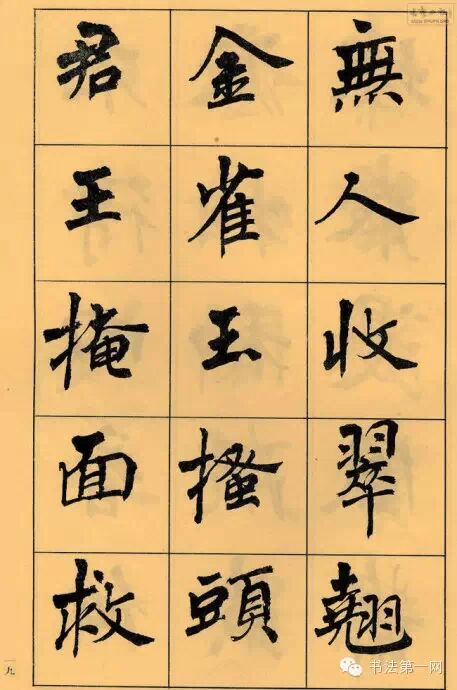 無人收翠翹
金雀玉搔頭
君王掩面救
一九
书法第一网